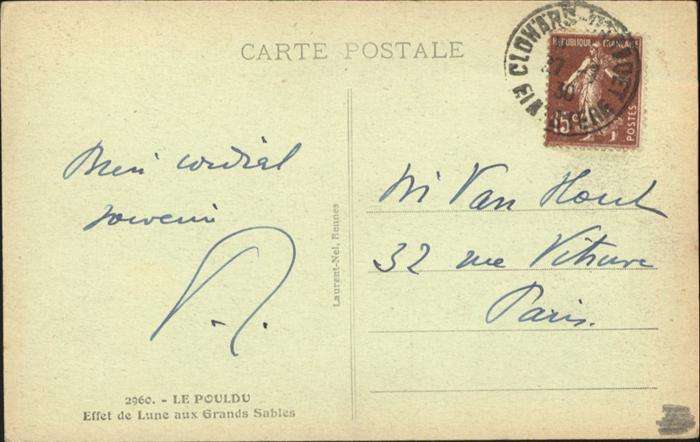 CARTE POSTALE
REPUBLIQUE FRANÇAISE
15c
POSTES
CLOHARS
Bien cordial
souvenir
Laurent-Nel, Rennes
Mr Van Hout
32 rue Vitruve
Paris.
2960. - LE POULDU
Effet de Lune aux Grands Sables